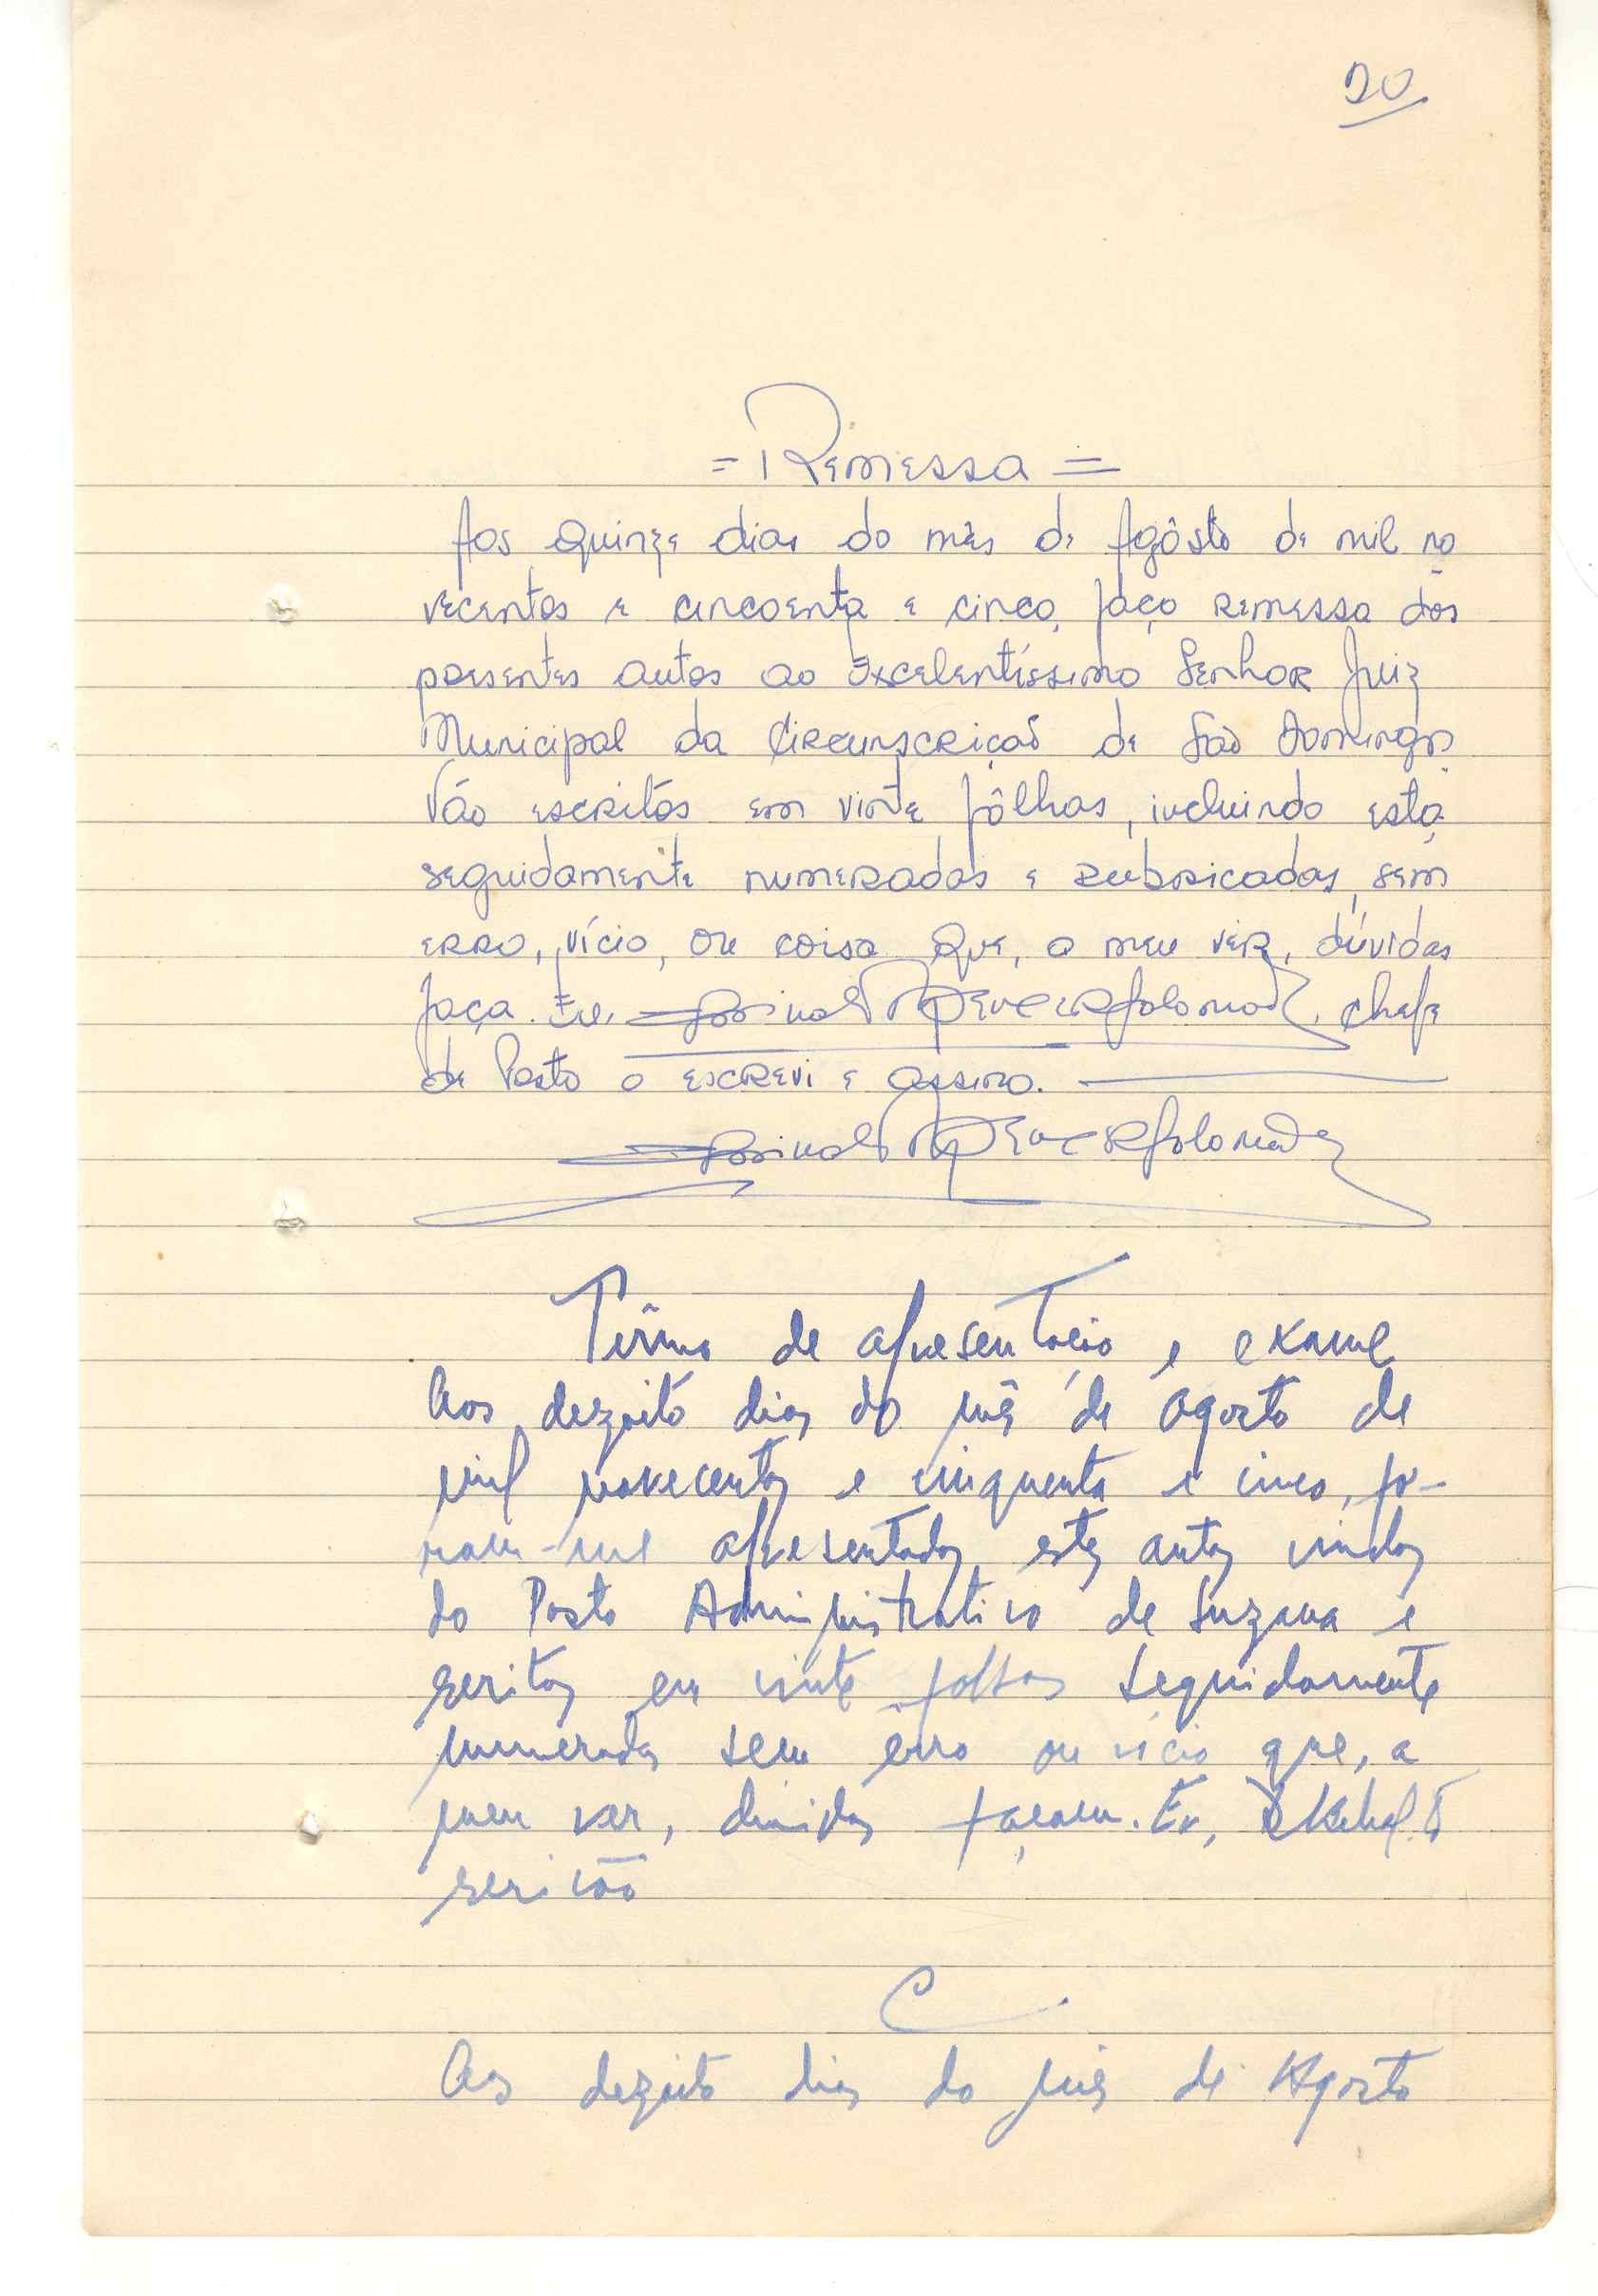 20
= Remessa =
Aos quinze dias do mês de Agôsto de mil no
vecentos e cincoenta e cinco, faço remessa dos
presentes autos ao Excelentíssimo Senhor Juiz
Municipal da Circunscrição de São Domingos.
Vão escritos em vinte fôlhas, incluindo esta,
seguidamente numeradas e rubricadas, sem
erro, vício, ou coisa que, a meu ver, dúvidas
faça. Eu, chefe
de Posto o escrevi e assino.
Têrmo de apresentação e exame
Aos dezoito dias do mês de Agosto de
mil novecentos e cinquenta e cinco, fo-
ram-me apresentados estes autos vindos
do Posto Administrativo de Suzana e
scritos em vinte folhas seguidamente
numeradas sem êrro ou vício que, a
meu ver, dúvidas façam. Eu,
scrivão
C
Aos dezoito dias do mês de Agosto